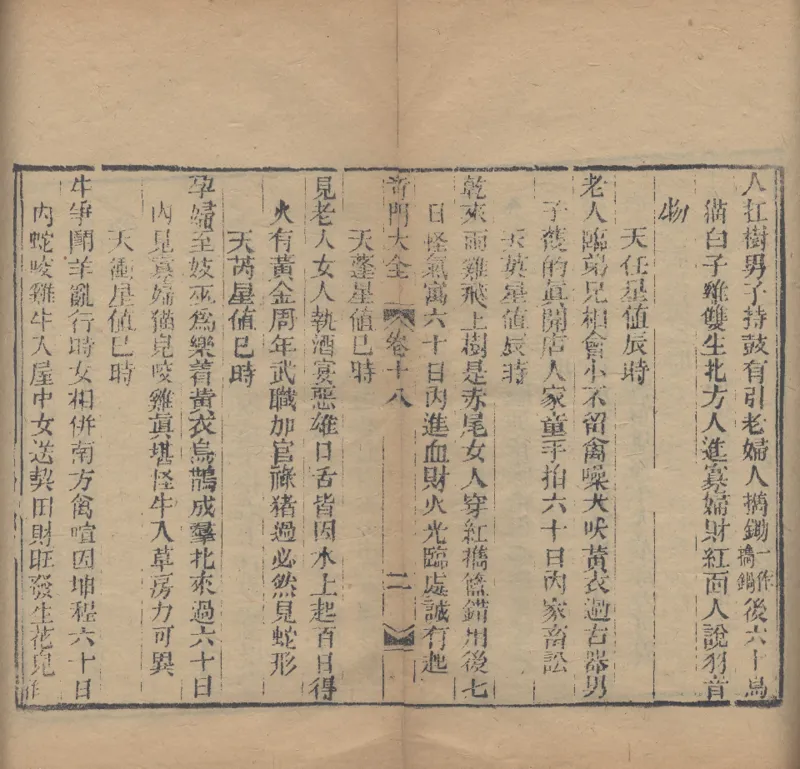 人扛樹男子持鼓有引老婦人擕鋤一作擕鍋後六十烏
猫白子雞雙生北方人進寡婦財紅面人說羽音
物
天任星值辰時
老人臨弟兄相會小不留禽噪犬吠黃衣過右器男
子護的眞開店人家童手拍六十日內家畜訟
天英星值辰時
乾來雨雞飛上樹是赤尾女人穿紅擕籃錯用後七
日怪氣寓六十日內進血財火光臨處誠有起
奇門大全 卷十八 二
天蓬星值巳時
見老人女人執酒宴惡雄口舌皆因水上起百日得
火有黃金周年武職加官祿猪過必然見蛇形
天芮星值巳時
孕婦至妓巫爲樂着黃衣烏鵲成羣北來過六十日
內見寡婦猫皃咬雞眞堪怪牛入草房力可異
天衝星值巳時
牛爭鬭羊亂行時女相併南方禽喧因埤程六十日
內蛇咬雞牛入屋中女送契田財旺發生花皃